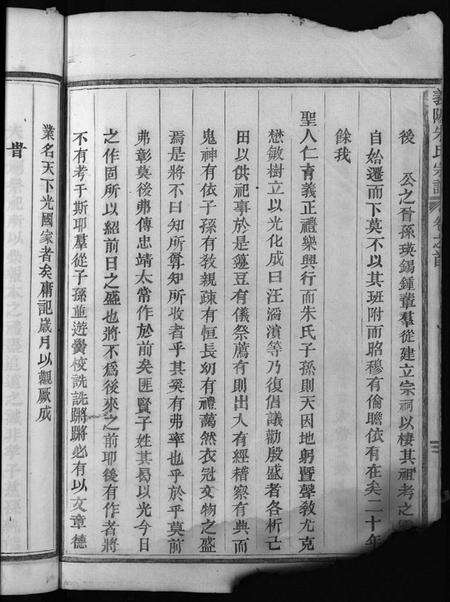 義陽朱氏宗譜 卷之首
後 公之晉孫瑛錫鍾輩羣從建立宗祠以棲其祖考之
自始遷而下莫不以其班附而昭穆有倫瞻依有在矣二十年
餘我
聖人仁育義正禮樂興行而朱氏子孫則天因地躬暨聲敎尤克
懋敏樹立以光化成曰汪濵等乃復倡議勸殷盛者各析己
田以供祀事於是籩豆有儀祭薦有則出入有經稽察有典而
鬼神有依子孫有敎親疎有恒長幼有禮藹然衣冠文物之盛
焉是將不曰知所尊知所收者乎其奚有弗率也乎於乎莫前
弗彰莫後弗傳忠靖太常作於前矣匪賢子姓其曷以光今日
之作固所以紹前日之盛也將不爲後來之前耶後有作者將
不有考于斯耶羣從子孫並遊黌校詵詵蹡蹡必有以文章德
業名天下光國家者矣庸記歲月以觀厥成
昔